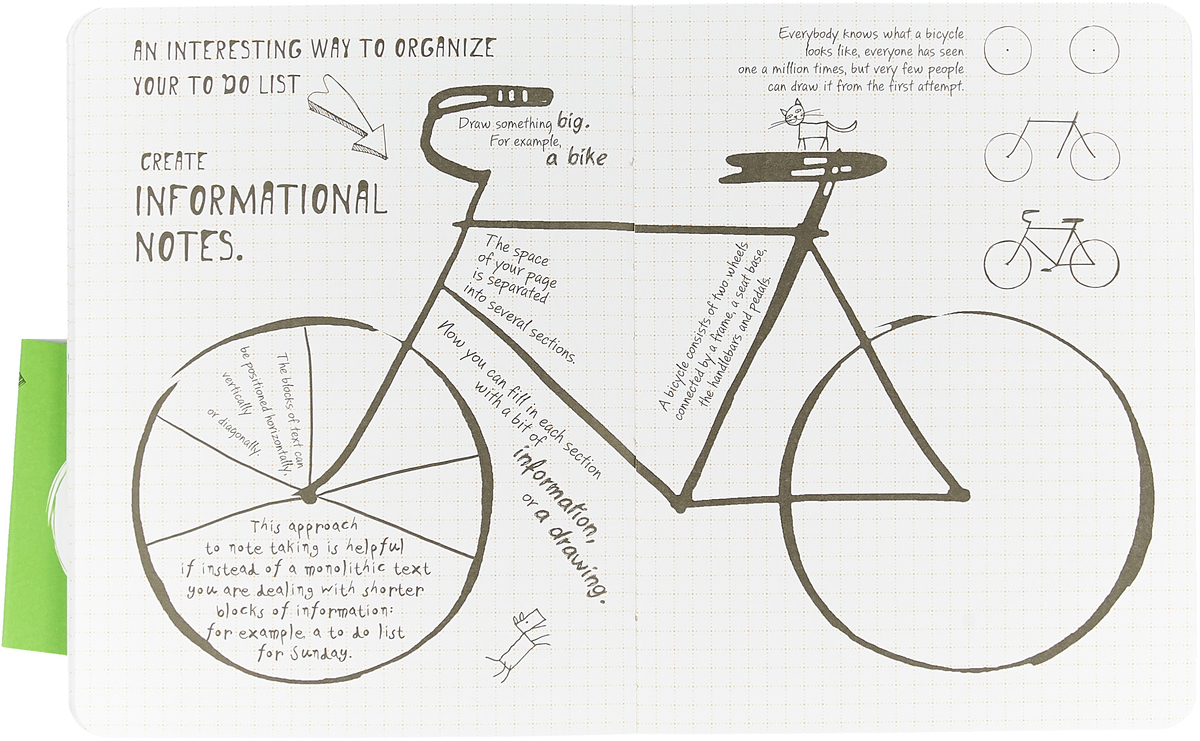 AN INTERESTING WAY TO ORGANIZE
YOUR TO DO LIST
CREATE
INFORMATIONAL
NOTES.
Draw something big.
For example,
a bike
Everybody knows what a bicycle
looks like, everyone has seen
one a million times, but very few people
can draw it from the first attempt.
The space
of your page
is separated
into several sections.
Now you can fill in each section
with a bit of
information,
or a drawing.
A bicycle consists of two wheels
connected by a frame, a seat base,
the handlebars and pedals.
The blocks of text can
be positioned horizontally,
vertically
or diagonally.
This approach
to note taking is helpful
if instead of a monolithic text
you are dealing with shorter
blocks of information:
for example a to do list
for Sunday.